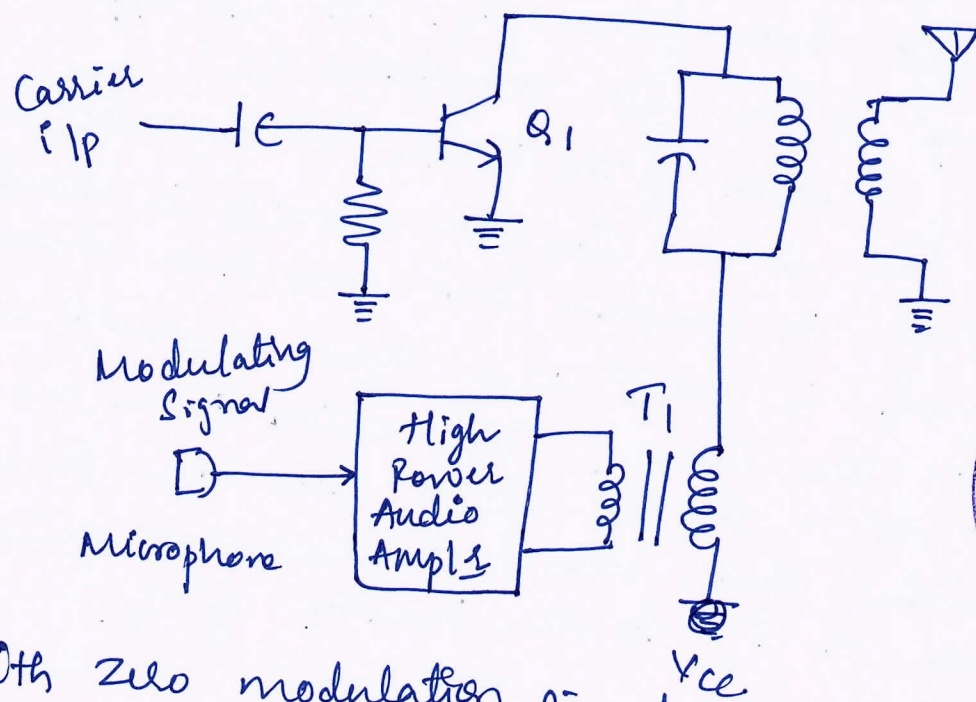 Carrier
i/p
Q1
Modulating
Signal
Microphone
High
Power
Audio
Amplr
T1
Vcc
With zero modulation